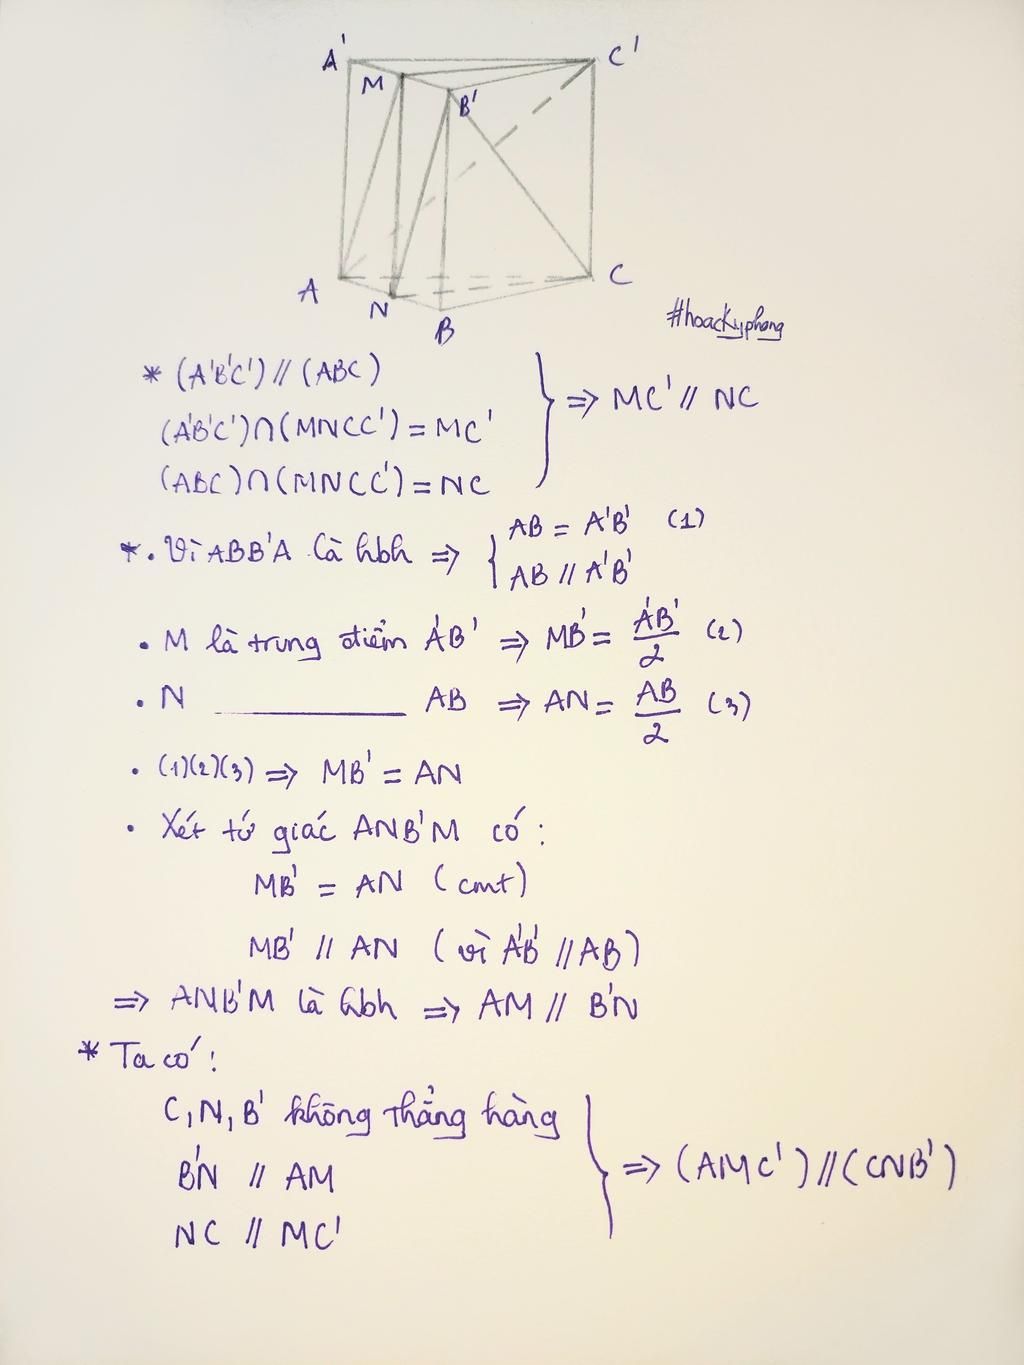 A'
C'
M
B'
A
C
N
B
#hoackyphong
* (A'B'C') // (ABC)
(A'B'C') ∩ (MNCC') = MC'
(ABC) ∩ (MNCC') = NC
} => MC' // NC
* . Vì ABB'A là hbh => { AB = A'B' (1)
AB // A'B'
. M là trung điểm A'B' => MB' = A'B'/2 (2)
. N ________ AB => AN = AB/2 (3)
. (1)(2)(3) => MB' = AN
. Xét tứ giác ANB'M có:
MB' = AN (cmt)
MB' // AN (vì A'B' // AB)
=> ANB'M là hbh => AM // B'N
* Ta có:
C, N, B' không thẳng hàng
B'N // AM
NC // MC'
} => (AMC') // (CNB')